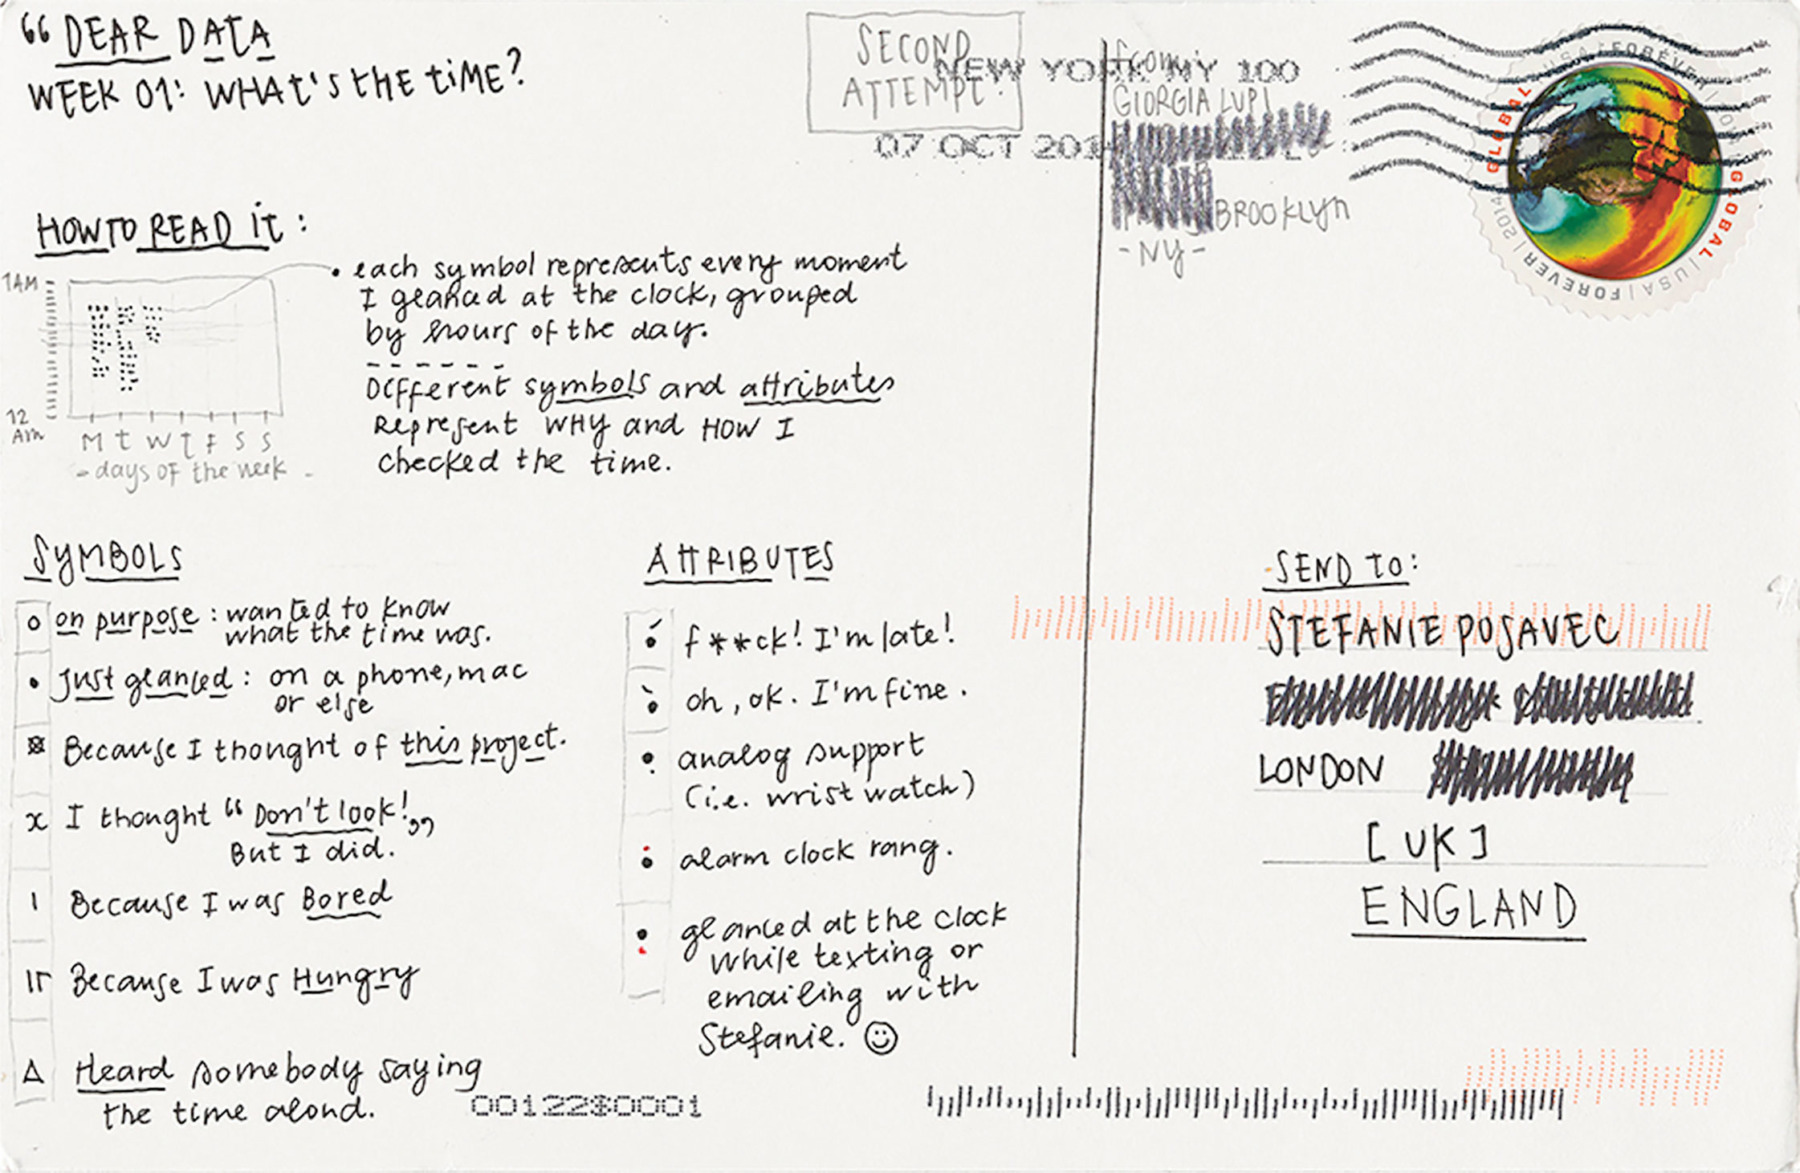 “ DEAR DATA
WEEK 01: WHAT'S THE TIME?
SECOND
ATTEMPT!
NEW YORK NY 100
07 OCT 201
from:
GIORGIA LUPI
BROOKLYN
- NY -
USA FOREVER
GLOBAL
2014
GLOBAL | USA | FOREVER | 2014
HOW TO READ IT:
1AM
12
AM
M T W T F S S
- days of the week -
• each symbol represents every moment
I glanced at the clock, grouped
by hours of the day.
DIFFerent symbols and attributes
Represent WHY and HOW I
checked the time.
SYMBOLS
on purpose: wanted to know
what the time was.
Just glanced: on a phone, mac
or else
Because I thought of this project.
x I thought “Don't look!„
But I did.
Because I was Bored
Because I was Hungry
Heard somebody saying
the time aloud.
ATTRIBUTES
f**ck! I'm late!
oh, ok. I'm fine.
analog support
(i.e. wrist watch)
alarm clock rang.
glanced at the clock
while texting or
emailing with
Stefanie. ☺
SEND TO:
STEFANIE POSAVEC
LONDON
[UK]
ENGLAND
00122$0001